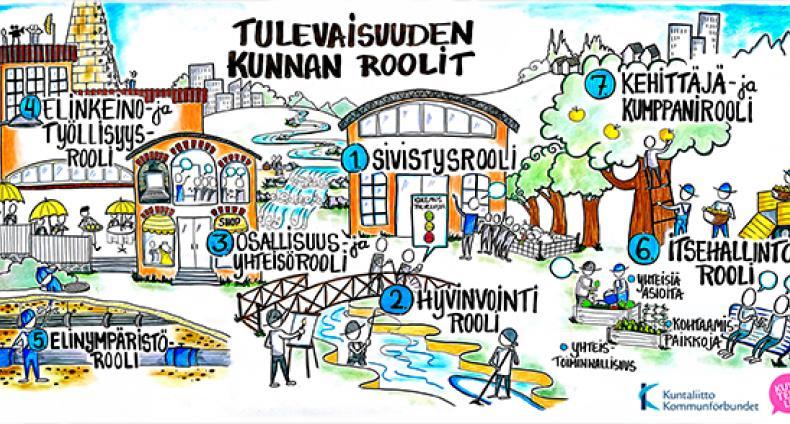 TULEVAISUUDEN
KUNNAN ROOLIT
1 SIVISTYSROOLI
2. HYVINVOINTI
ROOLI
3 OSALLISUUS- ja
YHTEISÖROOLI
4 ELINKEINO- ja
TYÖLLISYYS-
ROOLI
5 ELINYMPÄRISTÖ-
ROOLI
6. ITSEHALLINTO
ROOLI
• YHTEISIÄ
ASIOITA
• KOHTAAMIS-
PAIKKOJA
• YHTEIS-
TOIMINNALLISUUS
7 KEHITTÄJÄ- ja
KUMPPANIROOLI
SHOP
Kuntaliitto
Kommunförbundet